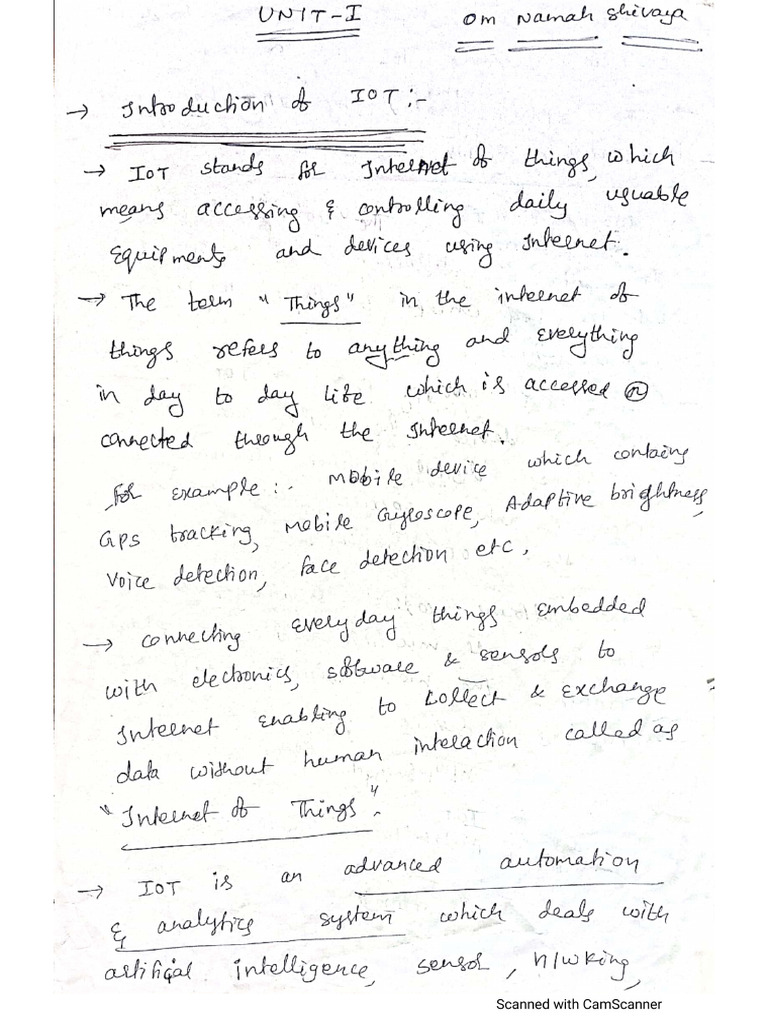 UNIT-I Om Namah Shivaya
→ Introduction of IOT:-
→ IoT stands for Internet of things, which
means accessing & controlling daily usuable
Equipments and devices using Internet.
→ The term "Things" in the internet of
things refers to anything and everything
in day to day life which is accessed (or)
connected through the Internet.
for example:- Mobile device which contains
GPS tracking, Mobile Gyroscope, Adaptive brightness,
Voice detection, face detection etc.
→ connecting everyday things embedded
with electronics, software & sensors to
Internet enabling to collect & exchange
data without human interaction called as
"Internet of Things".
→ IOT is an advanced automation
& analytics system which deals with
artifical intelligence, sensor, n/wking,
Scanned with CamScanner